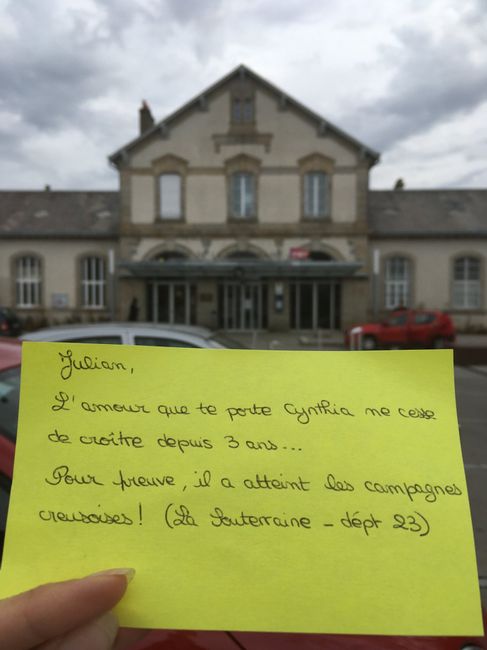 Julian,
L'amour que te porte Cynthia ne cesse
de croître depuis 3 ans...
Pour preuve, il a atteint les campagnes
creusoises ! (La Souterraine - dépt 23)